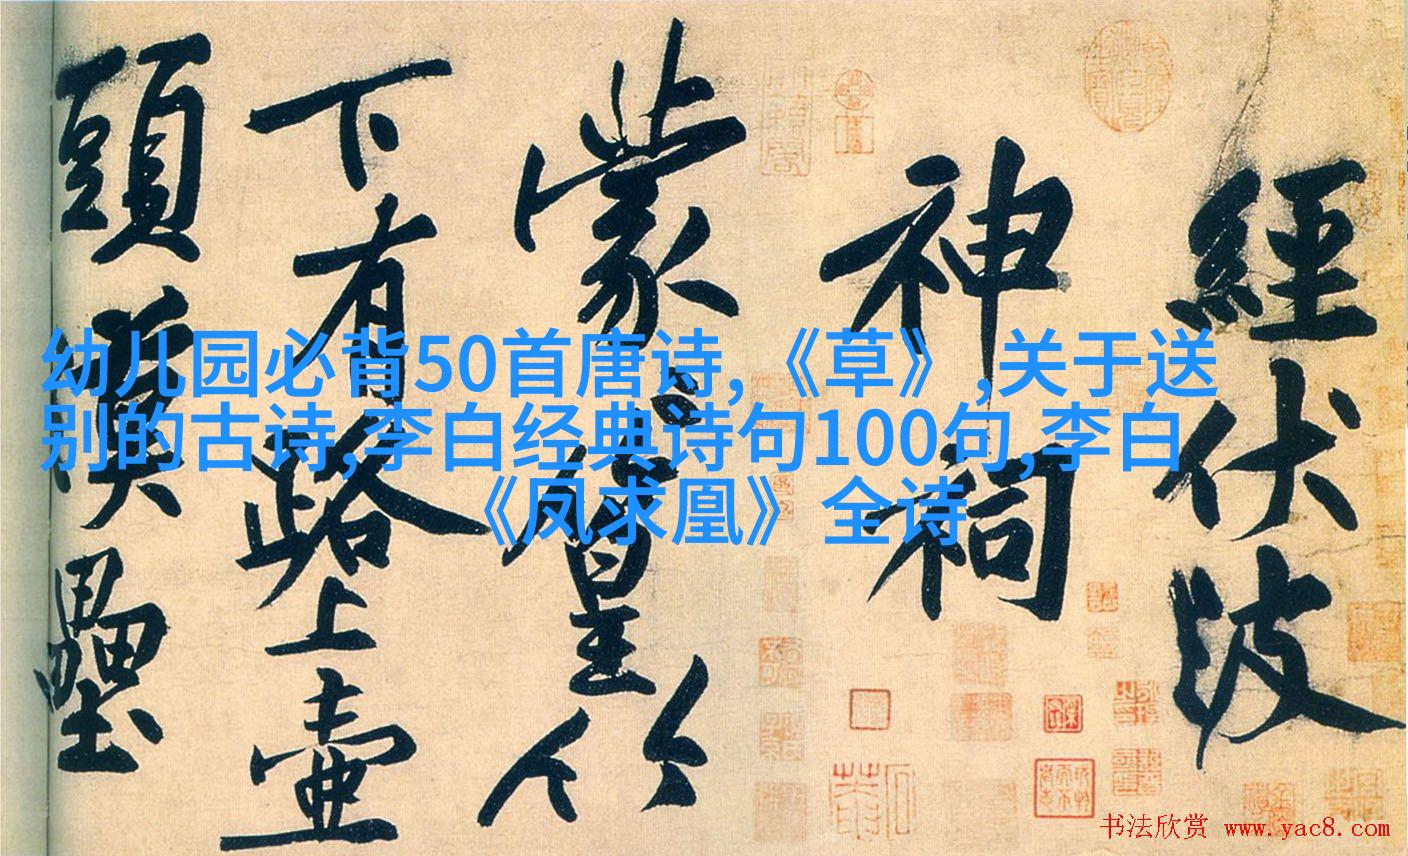 經伏波
神祠
蒙〻篁竹
下有路上壺
頭漢壘
幼儿园必背50首唐诗,《草》,关于送
别的古诗,李白经典诗句100句,李白
《凤求凰》全诗
书法欣赏 www.yac8.com